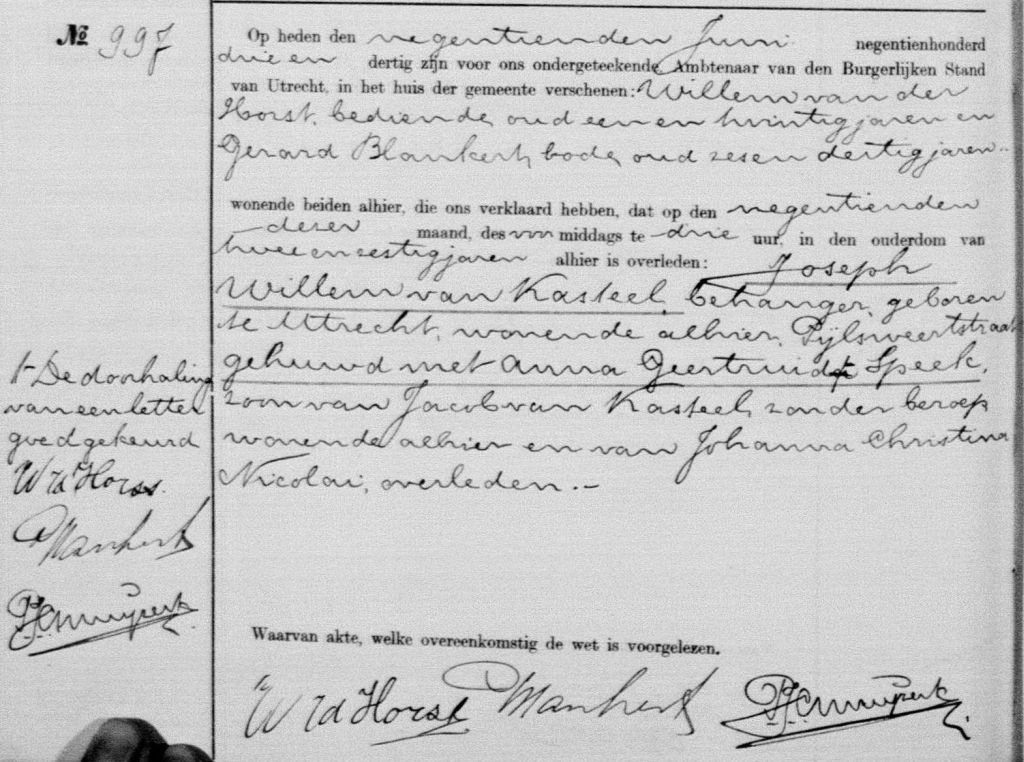 No 997
Op heden den negentienden Juni negentienhonderd
drie en dertig zijn voor ons ondergeteekende Ambtenaar van den Burgerlijken Stand
van Utrecht, in het huis der gemeente verschenen: Willem van der
Horst, bediende, oud een en twintig jaren en
Gerard Blankert, bode, oud zes en dertig jaren.-
wonende beiden alhier, die ons verklaard hebben, dat op den negentienden
dezer maand, des vm middags te drie uur, in den ouderdom van
twee en zestig jaren alhier is overleden: Joseph
Willem van Kasteel, behanger, geboren
te Utrecht, wonende alhier, Pijlsweertstraat
gehuwd met Anna Geertruid Speek,
zoon van Jacob van Kasteel, zonder beroep
wonende alhier en van Johanna Christina
Nicolai, overleden.-
1- De doorhaling
van een letter
goedgekeurd
W vd Horst.
Waarvan akte, welke overeenkomstig de wet is voorgelezen.
W vd Horst